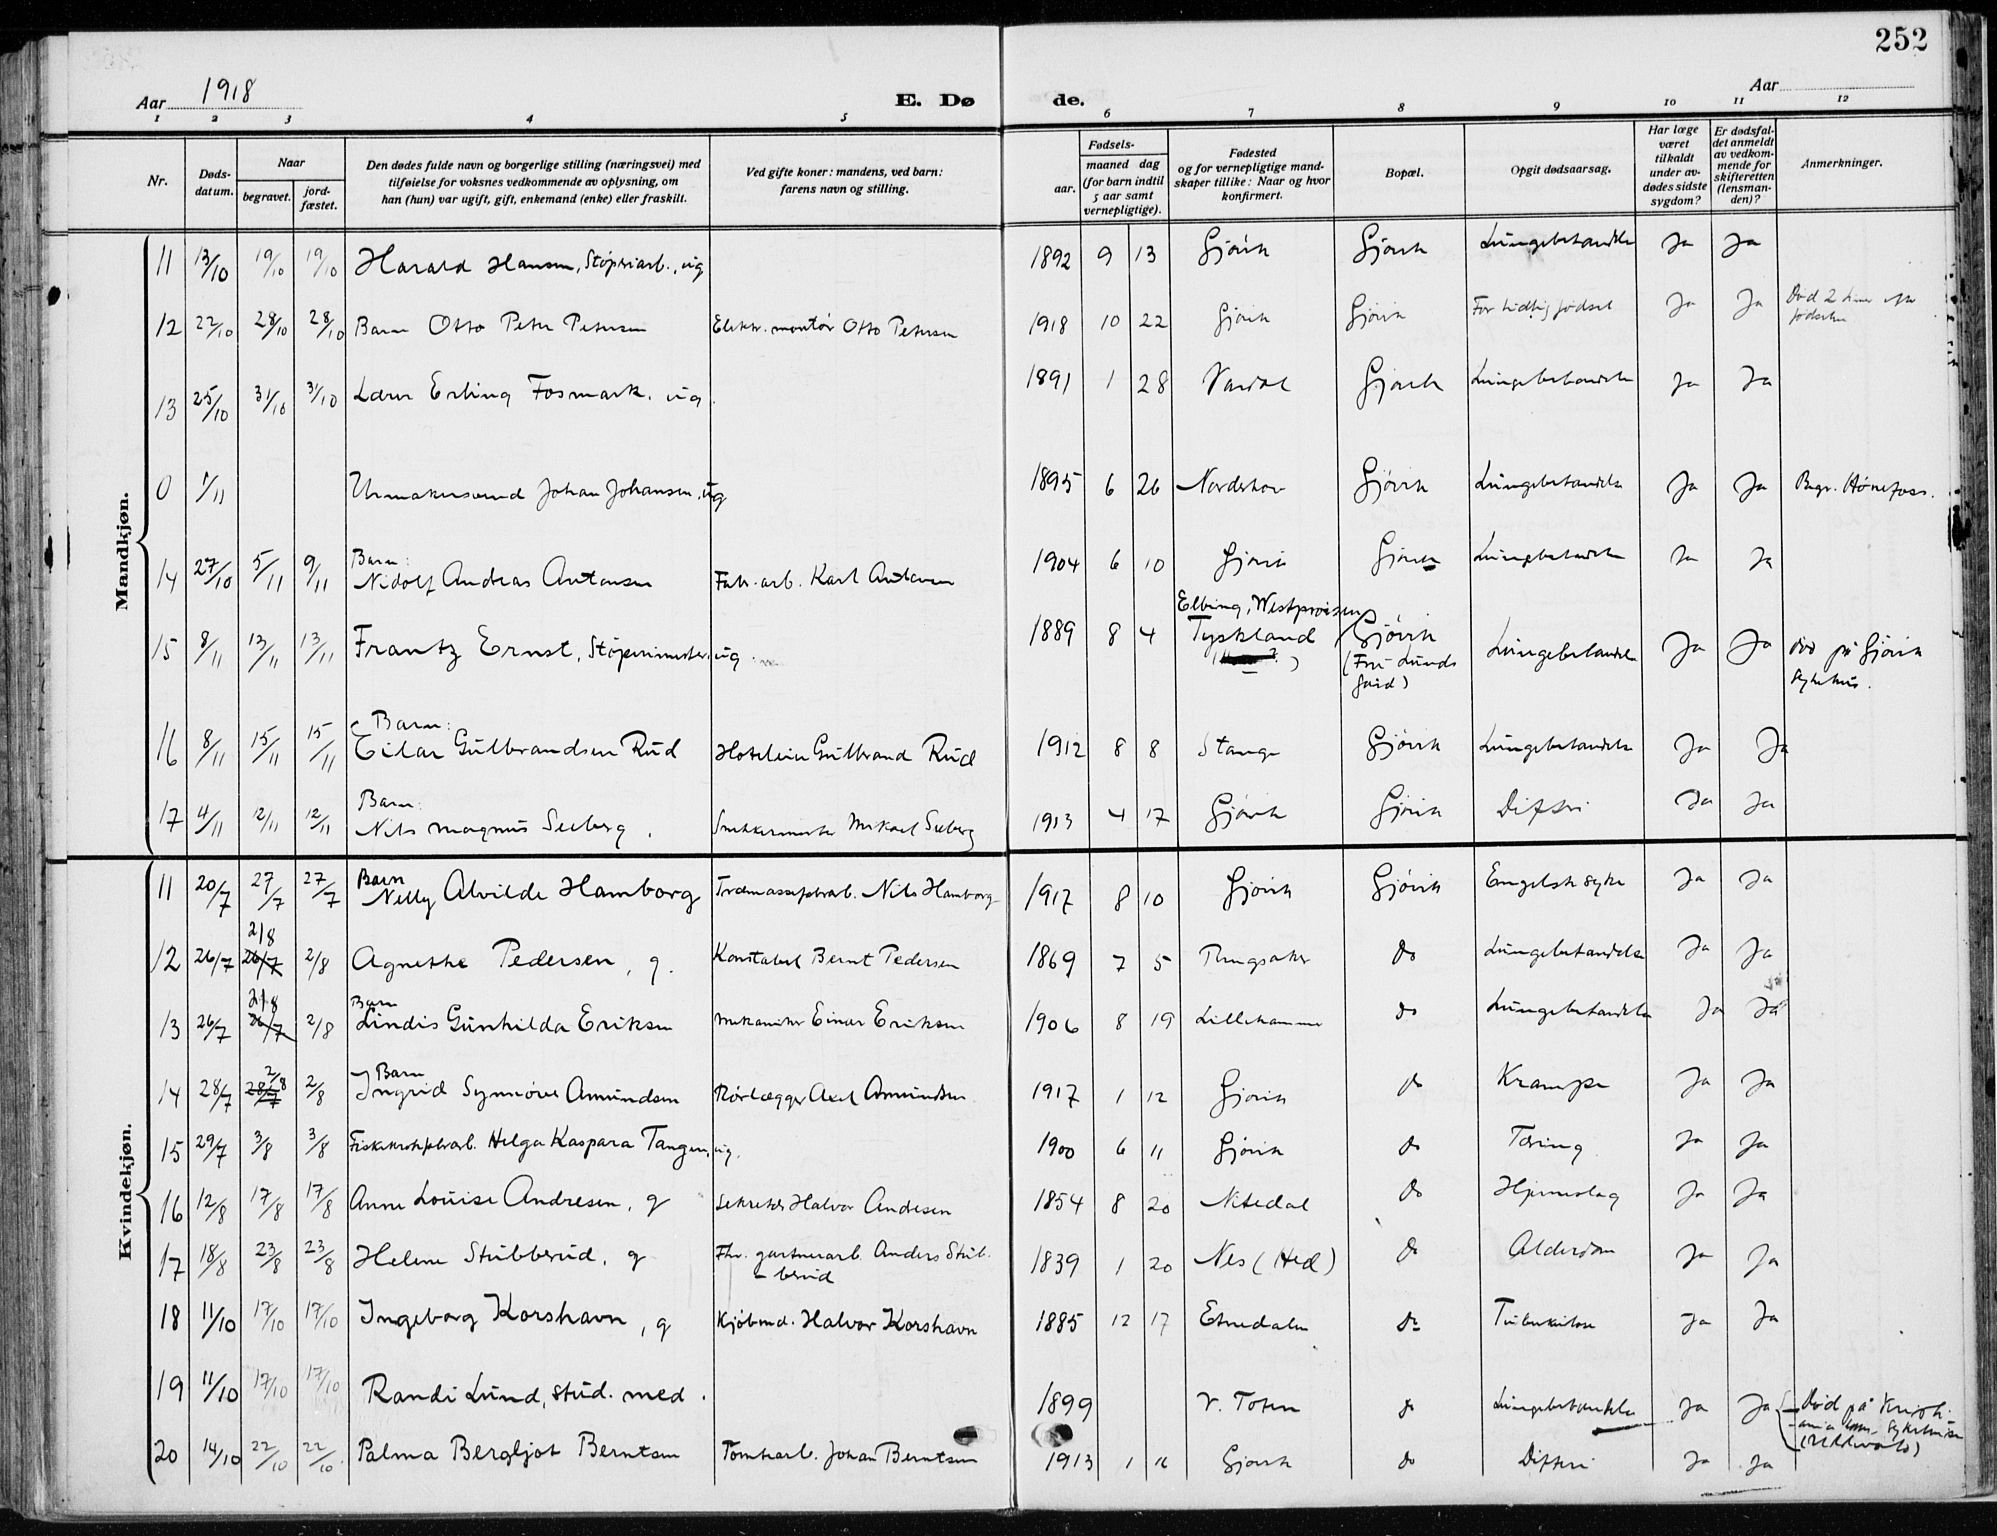 252
Aar 1918
E. Dø
de.
Aar
1 2 3 4 5 6 7 8 9 10 11 12
Nr.
Døds-
datum.
Naar
begravet.
jord-
fæstet.
Den dødes fulde navn og borgerlige stilling (næringsvei) med
tilføielse for voksnes vedkommende av oplysning, om
han (hun) var ugift, gift, enkemand (enke) eller fraskilt.
Ved gifte koner: mandens, ved barn:
farens navn og stilling.
Fødsels-
aar.
maaned dag
(for barn indtil
5 aar samt
vernepligtige).
Fødested
og for vernepligtige mand-
skaper tillike: Naar og hvor
konfirmert.
Bopæl.
Opgit dødsaarsag.
Har læge
været
tilkaldt
under av-
dødes sidste
sygdom?
Er dødsfal-
det anmeldt
av vedkom-
mende for
skifteretten
(lensman-
den)?
Anmerkninger.
Mandkjøn.
11 13/10 19/10 19/10 Harald Hansen, Støperiarb., ug 1892 9 13 Gjøvik Gjøvik Lungebetændelse Ja Ja
12 22/10 28/10 28/10 Barn Otto Peter Petersen Elektr. montør Otto Petersen 1918 10 22 Gjøvik Gjøvik For tidlig fødsel Ja Ja Død 2 timer efter
fødselen
13 25/10 31/10 31/10 Lærer Erling Fosmark. ug. 1891 1 28 Vardal Gjøvik Lungebetændelse Ja Ja
0 1/11 Urmakersvend Johan Johansen, ug 1895 6 26 Norderhov Gjøvik Lungebetændelse Ja Ja Begr. Hønefoss.
Barn:
14 27/10 5/11 9/11 Nidolf Andreas Antonsen Fabr. arb. Karl Antonsen 1904 6 10 Gjøvik Gjøvik Lungebetændelse Ja Ja
Elbing, Westprøisen
15 8/11 13/11 13/11 Frantz Ernst, Støperimester, ug. 1889 8 4 Tyskland Gjøvik Lungebetændelse Ja Ja død på Gjøvik
(Fru Lunds
gård)
sykehus.
Barn:
16 8/11 15/11 15/11 Eilar Gulbrandsen Rud Hoteleier Gulbrand Rud 1912 8 8 Stange Gjøvik Lungebetændelse Ja Ja
Barn:
17 4/11 12/11 12/11 Nils Magnus Seeberg. Snekkermester Mikael Seeberg 1913 4 17 Gjøvik Gjøvik Difteri Ja Ja
Kvindekjøn.
Barn
11 20/7 27/7 27/7 Nelly Alvilde Hamborg Træmassefabrarb. Nils Hamborg 1917 8 10 Gjøvik Gjøvik Engelsk syke Ja Ja
2/8
12 26/7 26/7 2/8 Agnethe Pedersen, g. Konstabel Bernt Pedersen 1869 7 5 Ringsaker do Lungebetændelse Ja Ja
2/8 Barn
13 26/7 26/7 2/8 Lindis Gunhilda Eriksen Mekaniker Einar Eriksen 1906 8 19 Lillehammer do Lungebetændelse Ja Ja
2/8 Barn
14 28/7 28/7 2/8 Ingrid Synnøve Amundsen Rørlægger Axel Amundsen 1917 1 12 Gjøvik do Krampe Ja Ja
15 29/7 3/8 3/8 Fiskekrokfabrarb. Helga Kaspara Tangen, ug. 1900 6 11 Gjøvik do Tæring Ja Ja
16 12/8 17/8 17/8 Anne Louise Andresen, g Sekretær Halvor Andresen 1854 8 20 Nitedal do Hjerneslag Ja Ja
17 18/8 23/8 23/8 Helene Stubberud, g Fhv. gartnerarb. Anders Stub-
berud 1839 1 20 Nes (Hed) do Alderdom Ja Ja
18 11/10 17/10 17/10 Ingeborg Korshavn, g Kjøbmd. Halvor Korshavn 1885 12 17 Etnedalen do Tuberkulose Ja Ja
19 11/10 17/10 17/10 Randi Lund, stud. med. 1899 V. Toten do Lungebetændelse Ja Ja Død på Kristi-
ania kom. sykehus
(Ullevold)
20 14/10 22/10 22/10 Palma Bergljot Berntsen Tomtearb. Johan Berntsen 1913 1 16 Gjøvik do Difteri Ja Ja